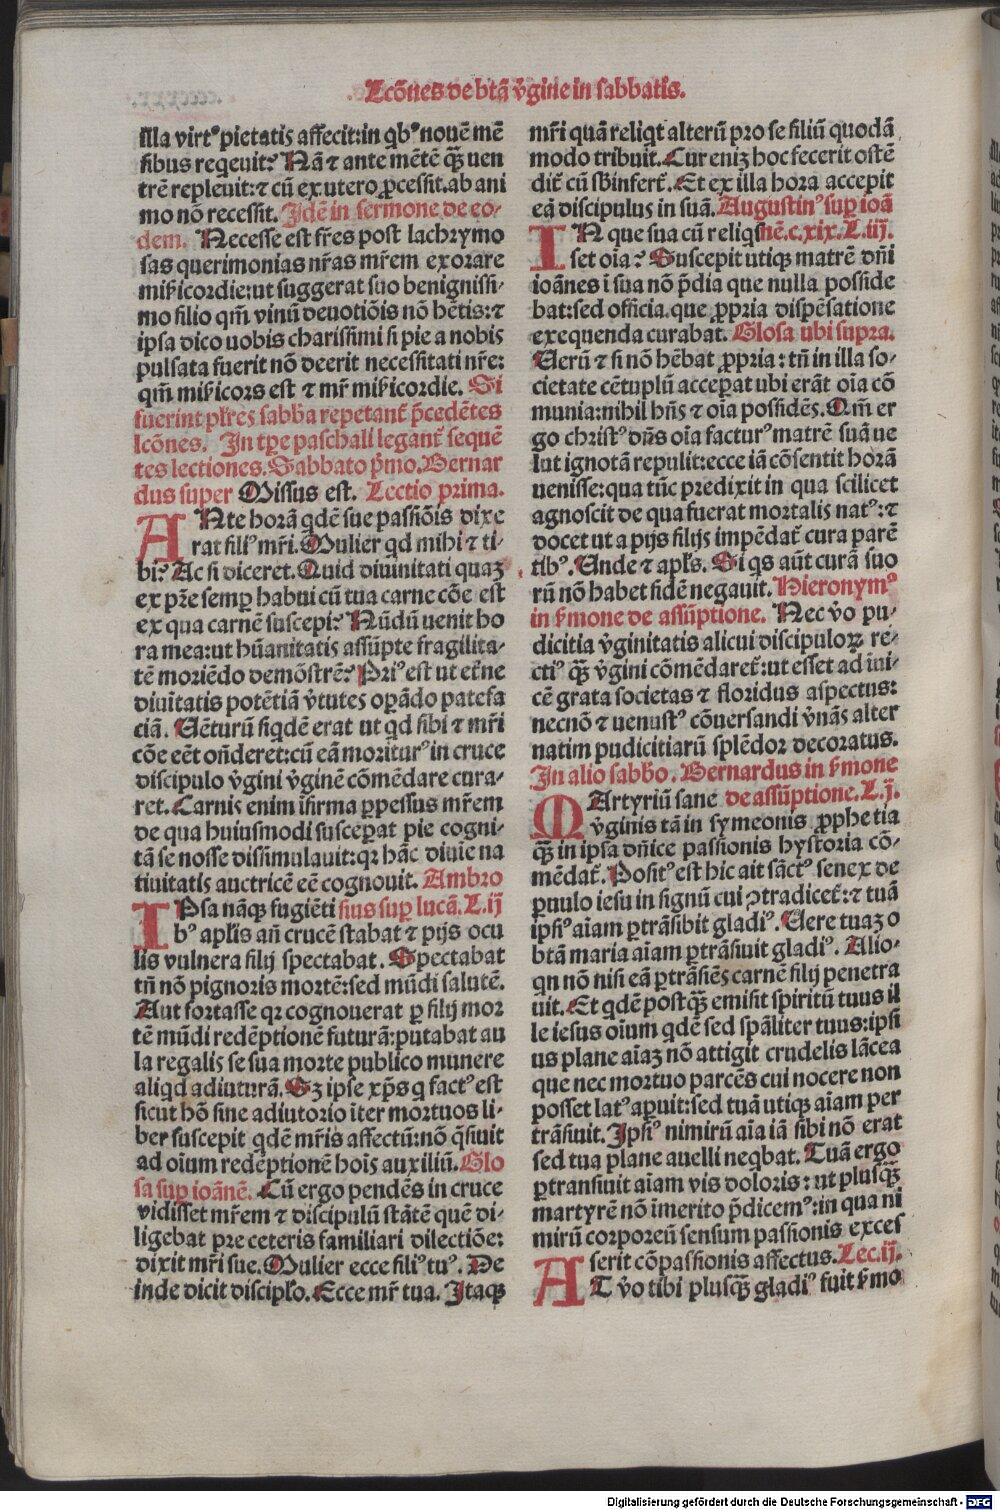 Lcōnes de btā v̄gine in sabbatis.
illa virtꝰ pietatis affecit: in qͥbꝰ nouē mē
sibus reqeuit? Nā ⁊ ante mētē qȝ̄ uen
trē repleuit: ⁊ cū ex utero ꝓcessit. ab ani
mo nō recessit. Idē in sermone de eo-
dem. Necesse est fr̄es post lachrymo
sas querimonias nr̄as mr̄em exorare
mīs̄icordie: ut suggerat suo benignissi-
mo filio qm̄ vinū deuotiōis nō hētis: ⁊
ipsa dico uobis charissimi si pie a nobis
pulsata fuerit nō deerit necessitati nr̄e:
qm̄ mīs̄icors est ⁊ mr̄ mīs̄icordie. Si
fuerint pl̄res sabb̄a repetant̄ p̄cedētes
lcōnes. In tp̄e paschali legant̄ sequē
tes lectiones. Sabbato p̄mo. Bernar
dus super Missus est. Lectio prima.
ANte horā qͥdē sue passiōis dixe
rat filiꝰ mr̄i. Mulier qͥd mihi ⁊ ti-
bi? Ac si diceret. Quid diuinitati quaȝ
ex pr̄e semꝑ habui cū tua carne cōe est
ex qua carnē suscepi? Nūdū uenit ho
ra mea: ut hūanitatis assūpte fragilita-
tē moriēdo demōstrē? Priꝰ est ut et̄ne
diuītatis potētiā v̄tutes oꝑādo patefa
ciā. Uēturū siqͥdē erat ut qͥd sibi ⁊ mr̄i
cōe eēt on̄deret: cū eā moriturꝰ in cruce
discipulo v̄gini v̄ginē cōmēdare cura-
ret. Carnis enim īfirma ꝑpessus mr̄em
de qua huiusmodi susceꝑat pie cogni-
tā se nosse dissimulauit: qꝛ hāc diuie na
tiuitatis auctricē eē cognouit. Ambro
IPsa nāqȝ fugiēti sius suꝑ lucā. L. ij
bꝰ apl̄is an̄ crucē stabat ⁊ pijs ocu
lis vulnera filij spectabat. Spectabat
tn̄ nō pignoris mortē: sed mūdi salutē.
Aut fortasse qꝛ cognouerat ꝑ filij mor
tē mūdi redēptionē futurā: putabat au
la regalis se sua morte publico munere
aliqͥd adiuturā. Sȝ ipse xp̄s qͥ factꝰ est
sicut hō sine adiutorio īter mortuos li-
ber suscepit qͥdē mr̄is affectū: nō qͣ̄siuit
ad oīum redēptionē hoīs auxiliū. Glo
sa suꝑ ioānē. Cū ergo pendēs in cruce
vidisset mr̄em ⁊ discipulū stātē quē di-
ligebat pre ceteris familiari dilectiōe:
dixit mr̄i sue. Mulier ecce filiꝰ tuꝰ. De
inde dicit discipl̄o. Ecce mr̄ tua. Itaqȝ
mr̄i quā reliqͥt alterū pro se filiū quodā
modo tribuit. Cur enīȝ hoc fecerit ostē
dit̄ cū sb̄infert̄. Et ex illa hora accepit
eā discipulus in suā. Augustinꝰ suꝑ ioā
IN que sua cū reliqͥs nē. c. xix. L. iij.
set oīa? Suscepit utiqȝ matrē dn̄i
ioānes ī sua nō p̄dia que nulla posside
bat: sed officia. que ꝓpria dispēsatione
exequenda curabat. Glosa ubi supra.
Uerū ⁊ si nō hēbat ꝓpria: tn̄ in illa so-
cietate cētuplū acceꝑat ubi erāt oīa cō
munia: nihil hn̄s ⁊ oīa possidēs. Qm̄ er
go christꝰ dn̄s oīa facturꝰ matrē suā ue
lut ignotā repulit: ecce iā cōsentit horā
uenisse: qua tūc predixit in qua scilicet
agnoscit de qua fuerat mortalis natꝰ: ⁊
docet ut a pijs filijs impēdat̄ cura parē
tibꝰ. Unde ⁊ apl̄s. Si qͥs aūt curā suo
rū nō habet fidē negauit. Hieronymꝰ
in s̄mone de assūptione. Nec v̄o pu-
dicitia v̄ginitatis alicui discipuloꝝ re-
ctiꝰ qȝ̄ v̄gini cōmēdaret̄: ut esset ad īui-
cē grata societas ⁊ floridus aspectus:
necnō ⁊ uenustꝰ cōuersandi v̄nās alter
natim pudicitiarū splēdor decoratus.
In alio sabb̄o. Bernardus in s̄mone
MArtyriū sane de assūptione. L. j.
v̄ginis tā in symeonis ꝓphetia
qȝ̄ in ipsa dn̄ice passionis hystoria cō-
mēdat̄. Positꝰ est hic ait sāctꝰ senex de
ꝑuulo iesu in signū cui ꝯtradicet̄: ⁊ tuā
ipsiꝰ aīam ꝑtrāsibit gladiꝰ. Uere tuaȝ o
btā maria aīam ꝑtrāsiuit gladiꝰ. Alio-
qn̄ nō nisi eā ꝑtrāsiēs carnē filij penetra
uit. Et qͥdē postqȝ̄ emisit spiritū tuus il
le iesus oīum qͥdē sed spāliter tuus: ipsi
us plane aīaȝ nō attigit crudelis lācea
que nec mortuo parcēs cui nocere non
posset latꝰ aꝑuit: sed tuā utiqȝ aīam per
trāsiuit. Ipsiꝰ nimirū aīa iā sibi nō erat
sed tua plane auelli neqͥbat. Tuā ergo
ꝑtransiuit aīam vis doloris: ut plusqȝ̄
martyrē nō imerito p̄dicemꝰ: in qua ni
mirū corporeū sensum passionis exces
serit cōpassionis affectus. Lec. ij.
AT v̄o tibi plusqȝ̄ gladiꝰ fuit s̄mo
Digitalisierung gefördert durch die Deutsche Forschungsgemeinschaft - DFG